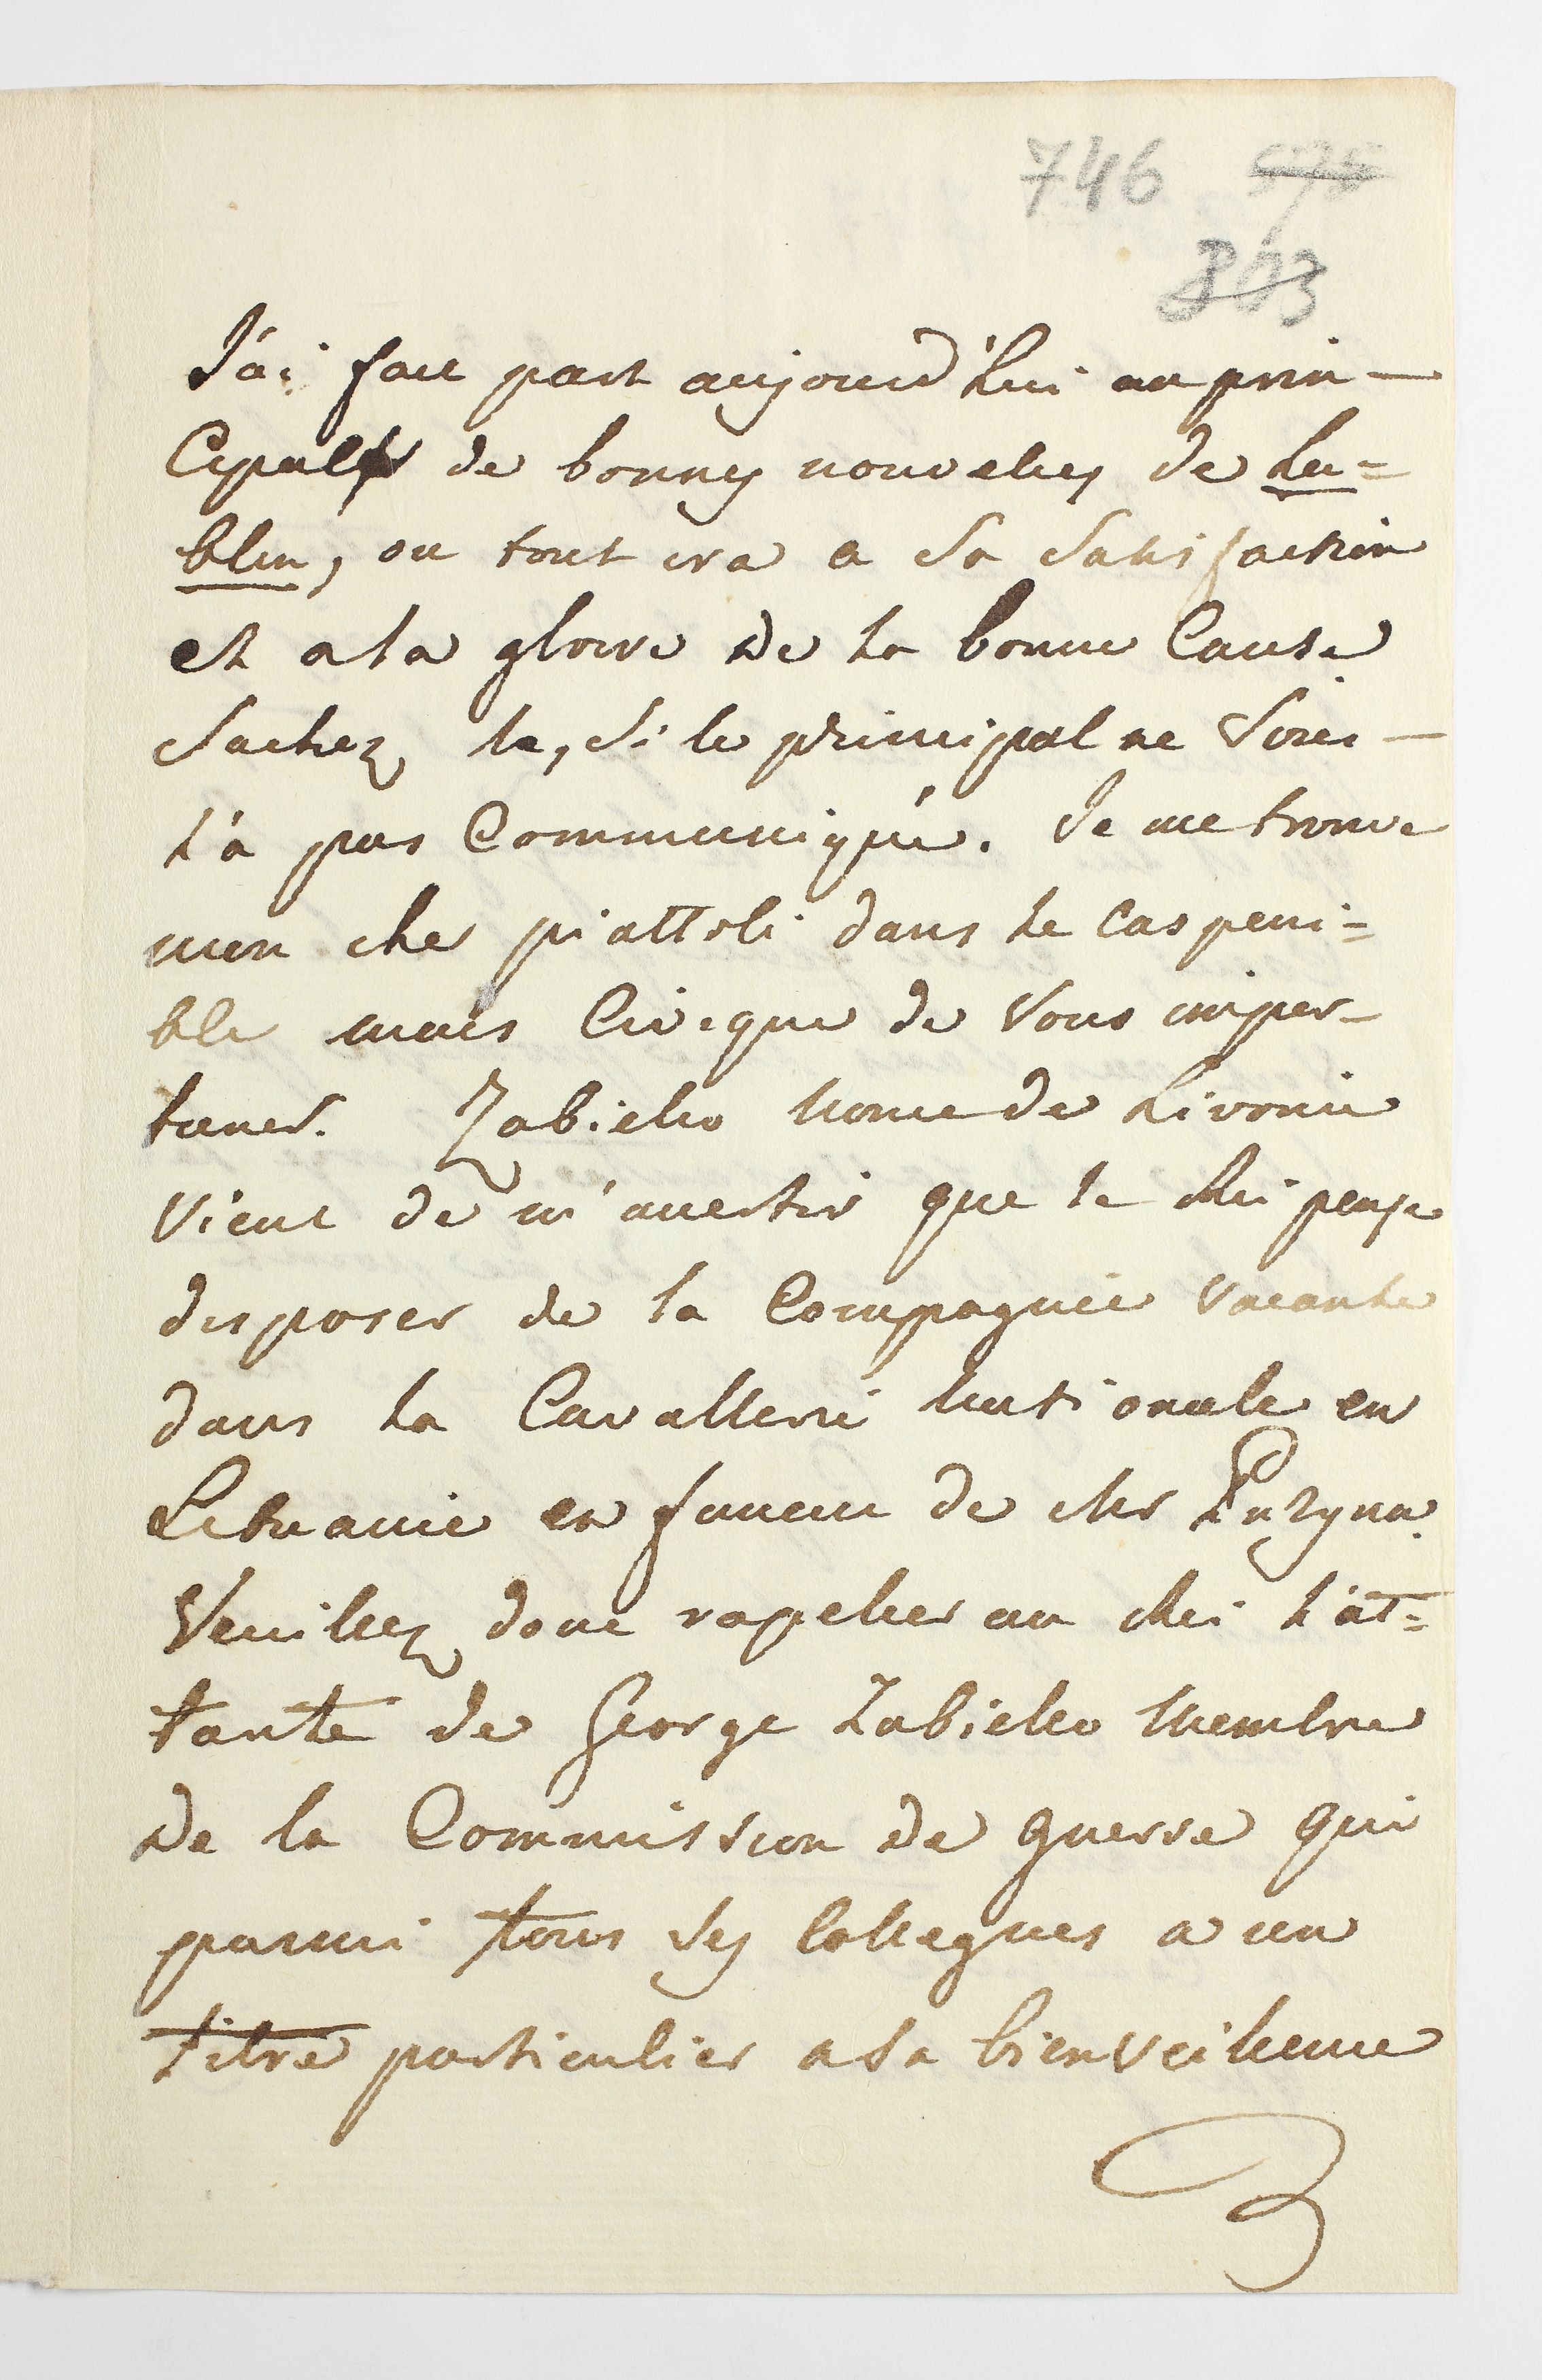 746 575
803
J'ai fait part aujourd'hui au prin-
cypal de bonnes nouvelles de Lu=
blin, ou tout ira a Sa Satisfaction
et a la gloire de la bonne Cause
Sachez le, Si le principal ne Vous
l'a pas Communiqué. Je me trouve
mon cher piattoli dans le cas peni=
ble mais Civique de Vous impor-
tuner. Zabiello Nonce de Livonie
Vient de m'avertir que le Roi pense
disposer de la Compagnie Vacante
dans la Cavallerie Nationale en
Lituanie en faveur de Mr Puzyna.
Veuillez donc rapeller au Roi l'at=
tante de George Zabiello Membre
de la Commission de guerre qui
parmi tous Ses Collegues a un
titre particulier a Sa bienveillence